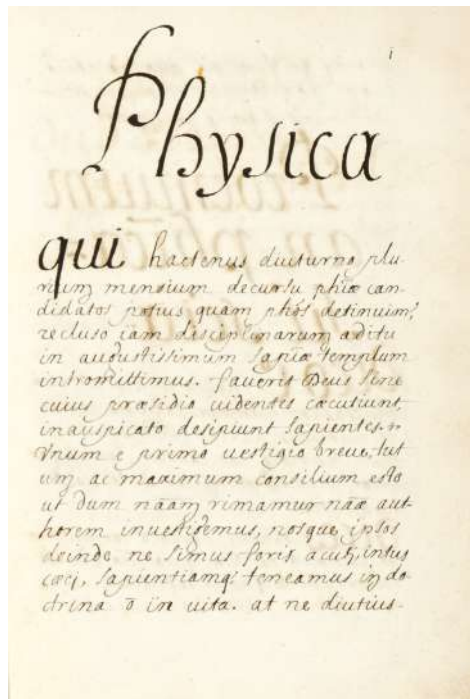 1
Physica
qui hactenus diuturno plu-
rium mensium decursu phiæ can-
didatos potius quam phōs detinuim9
recluso iam disciplinarum aditu
in augustissimum sapiæ templum
intromittimus. faverit Deus sine
cuius præsidio videntes cæcutiunt,
inauspicato desipiunt sapientes.
Vnum e primo vestigio breve, tut
um ac maximum consilium esto
ut dum nāam rimamur nāæ aut-
horem investigemus, nosque ipsos
deinde ne simus foris acuti, intus
cæci, sapientiamq; teneamus in do-
ctrina ō in vita. at ne diutius-